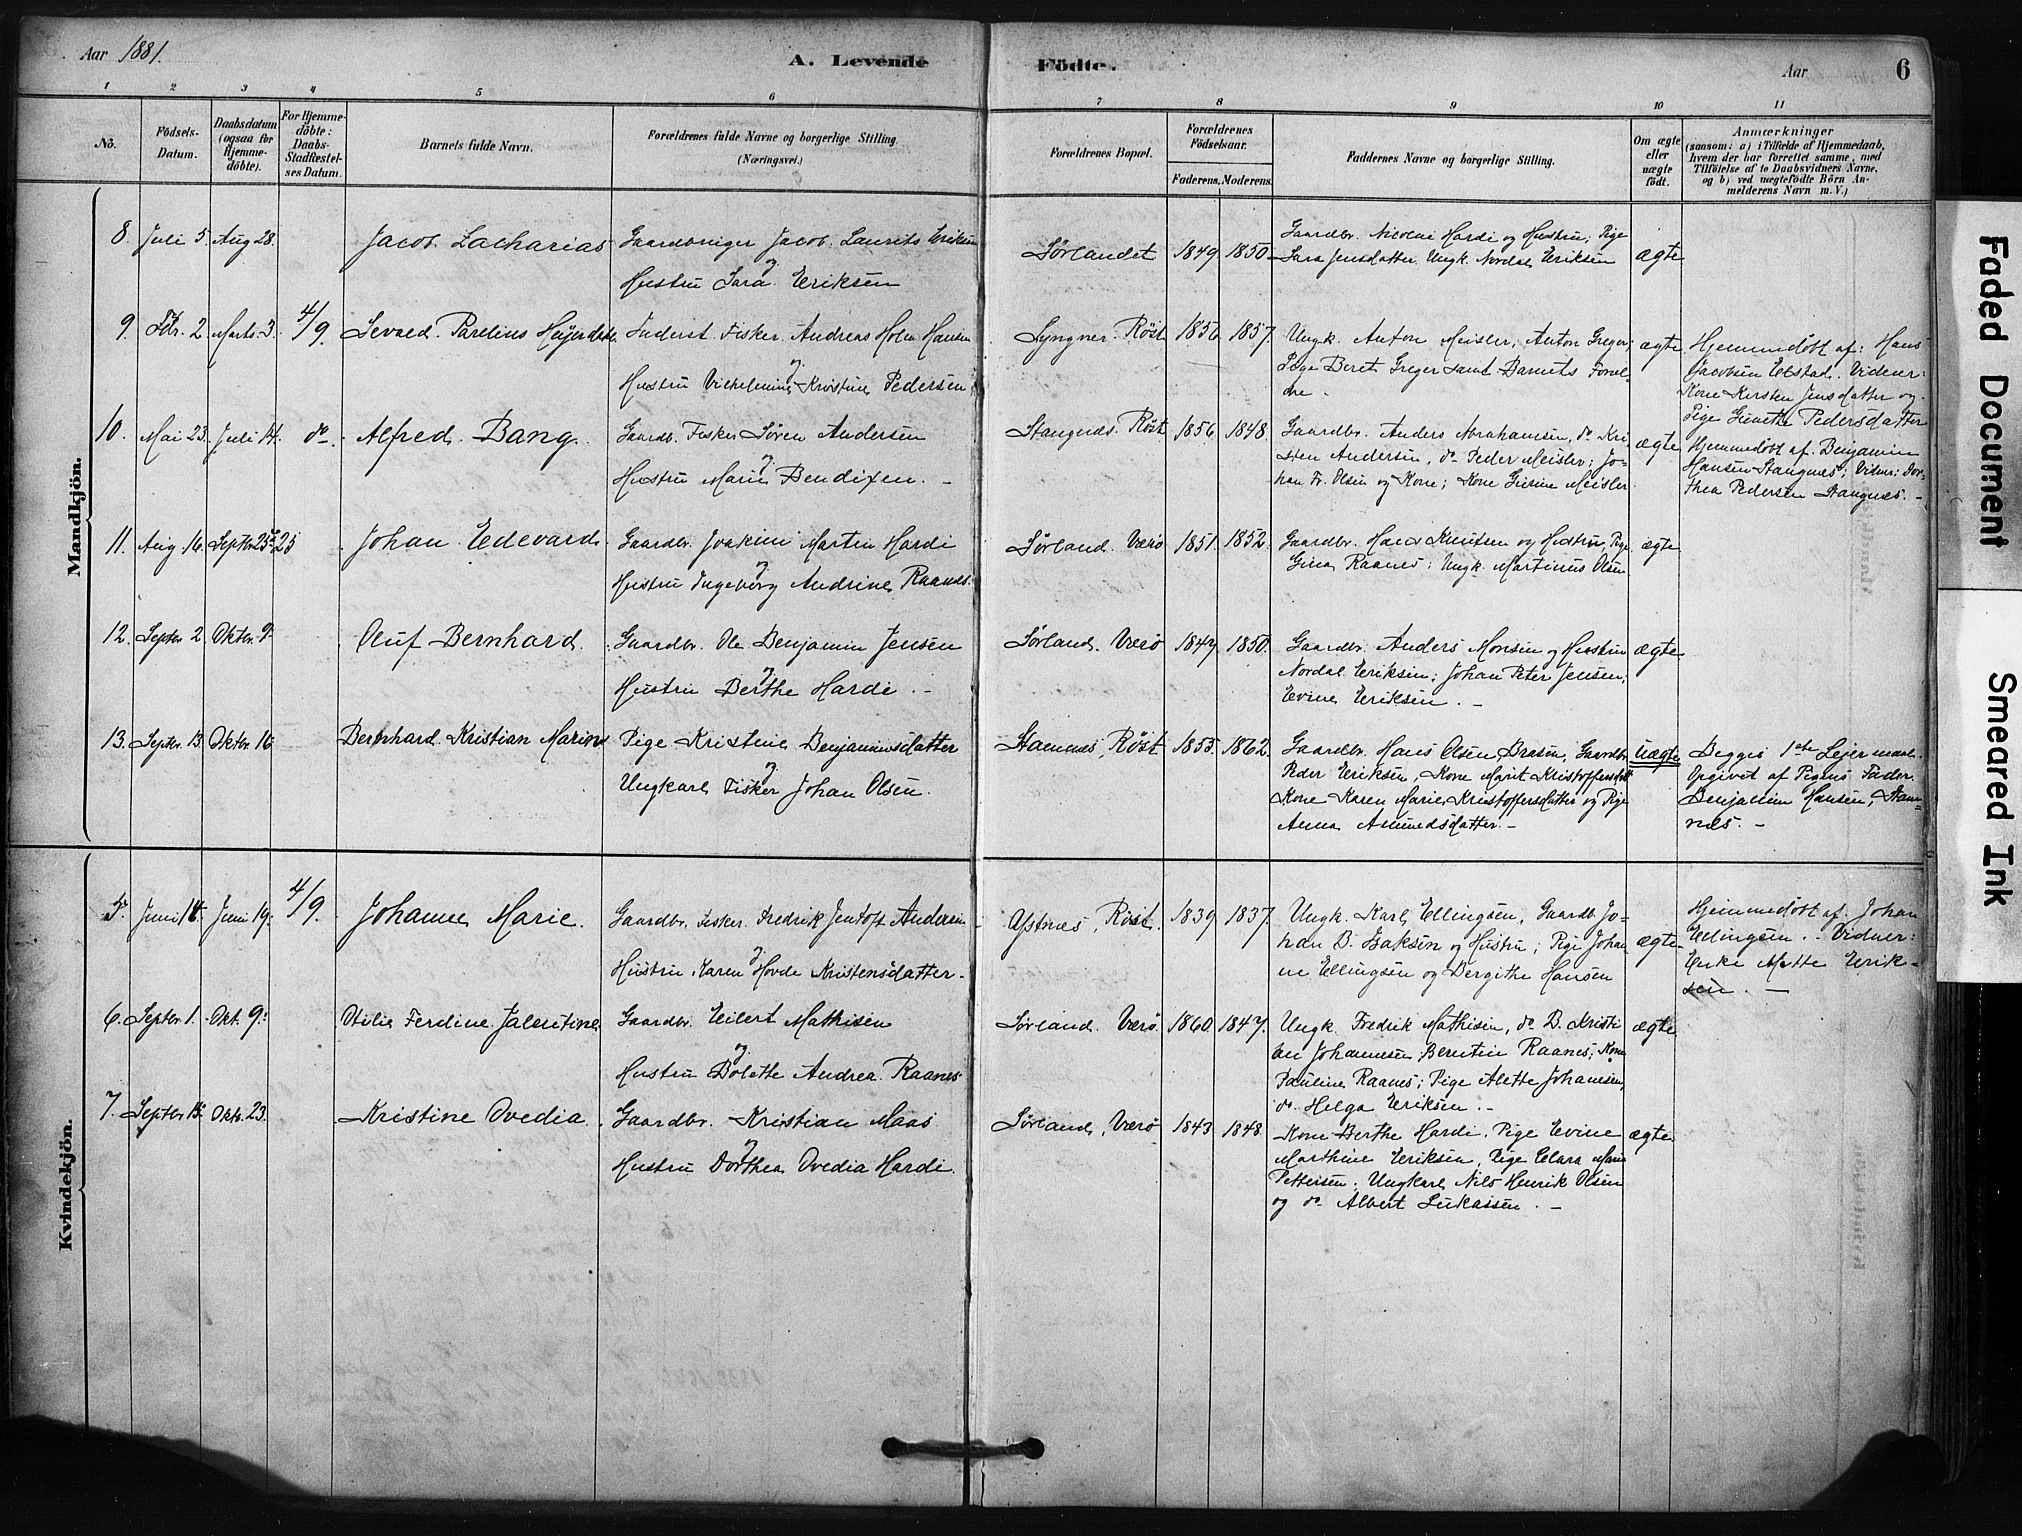 Aar 1881.
A. Levende Födte.
Aar
6
1 2 3 4 5 6 7 8 9 10 11
No.
Födsels-Datum.
Daabsdatum (ogsaa for Hjemme-döbte).
For Hjemme-döbte: Daabs-Stadfæstel-ses Datum.
Barnets fulde Navn.
Forældrenes fulde Navne og borgerlige Stilling.
(Næringsvei.)
Forældrenes Bopæl.
Forældrenes Födselsaar.
Faderens. Moderens.
Faddernes Navne og borgerlige Stilling.
Om ægte eller uægte födt.
Anmærkninger
(saasom: a) i Tilfælde af Hjemmedaab,
hvem der har forrettet samme, med
Tilföielse af to Daabsvidners Navne,
og b) ved uægtefödte Börn An-
melderens Navn m. V.)
Mandkjön.
8. Juli 5. Aug 28. Jacob Zacharias Gaardbruger Jacob Laurits Eriksen
og
Hustru Sara Eriksen
Sørlandet 1849 1850
Gaardbr. Nicolai Hardi og Hustru; Pige
Sara Jensdatter. Ungk. Nordal Eriksen
ægte
9. Fbr. 2. Marts 3. 4/9. Sevald Parelius
Inderst Fisker Andreas Holm Hansen
og
Hustru Vilhelmine Kristine Pedersen
Røst 1856 1857.
Ungk. Anton Meisler, Anton Greger,
Pige Beret Greger samt Barnets Foræl-
dre.
ægte
Hjemmedøbt af: Hans
Jacobsen. Vidner:
Kone Kirsten Jensdatter og
Pige Pedersdatter
10. Mai 23. Juli 14. do. Alfred Bang.
Gaardb. Fisker Søren Andersen
og
Hustru Marie Bendixen.
Stangnæs. Røst 1856. 1848.
Gaardbr. Anders Abrahamsen, do Kri-
sten Andersen, do Peder Meisler; Jo-
han Fr. Olsen og Kone; Kone Meisler
ægte
Hjemmedøbt af. Benjamin
Hansen Stangnæs; Vidner: Dor-
thea Pedersen Stangnæs. -
11. Aug. 16. Septbr. 25 25 Johan Edevard.
Gaardbr. Joakim Martin Hardi
og
Hustru Ingeborg Andrine Raanes.
Sørland. Værø 1851. 1852.
Gaardbr. Hans Knutsen og Hustru, Pige
Gina Raanes; Ungk. Martinus Olsen
ægte
12. Septbr. 2. Oktbr. 9. Oluf Bernhard.
Gaardbr. Ole Benjamin Jensen
og
Hustru Berthe Hardi. -
Sørland. Værø 1847 1850.
Gaardbr. Anders Monsen og Hustru
Nordal Eriksen; Johan Peter Jensen,
Evine Eriksen. -
ægte
13. Septbr. 13. Oktbr. 16 Bernhard Kristian Marion
Pige Kristine Benjaminsdatter
og
Ungkarl Fisker Johan Olsen.
Stamnæs, Røst. 1855. 1862.
Gaardbr. Hans Olsen, Gaardbr.
Peder Eriksen, Kone Marit Kristoffersdatt
Kone Karen Marie Kristoffersdatter og Pige
Anna Amundsdatter. -
Uægte
Begges 1ste Lejermaal.
Opgivet af Pigens Fader
Benjamin Hansen, Stam-
næs. -
Kvindekjön.
5. Juni 14. Juni 19. 4/9. Johanne Marie.
Gaardbr. Fisker Fredrik Jentoft Andersen
og
Hustru Karen Hovde Kristensdatter.
Røst. 1839 1837.
Ungk. Karl Ellingsen, Gaardb. Jo-
han B. Isaksen og Hustru; Pige Johan
ne Ellingsen og Bergithe Hansen
ægte
Hjemmedøbt af. Johan
Ellingsen. Vidner:
Enke Mette Erik-
sen. -
6. Septbr. 1. Okt. 9. Otilie Ferdine
Gaardbr. Eilert Mathisen
og
Hustru Bolette Andrea Raanes
Sørland. Værø 1860. 1847.
Ungk. Fredrik Mathisen, do B. Kristi
an Johannesen; Raanes; Kone
Pauline Raanes; Pige Alette Johansen,
do. Helga Eriksen. -
ægte
7. Septbr. 15. Oktbr. 23. Kristine Ovedia.
Gaardbr. Kristian Maas
og
Hustru Dorthea Ovedia Hardi
Sørland, Værø 1843 1848
Kone Berthe Hardi. Pige Evine
Marthine Eriksen, Pige Clara Marie
Pettersen; Ungkarl Nils Henrik Olsen
og do Albert Lukassen. -
ægte
Faded Document
Smeared Ink